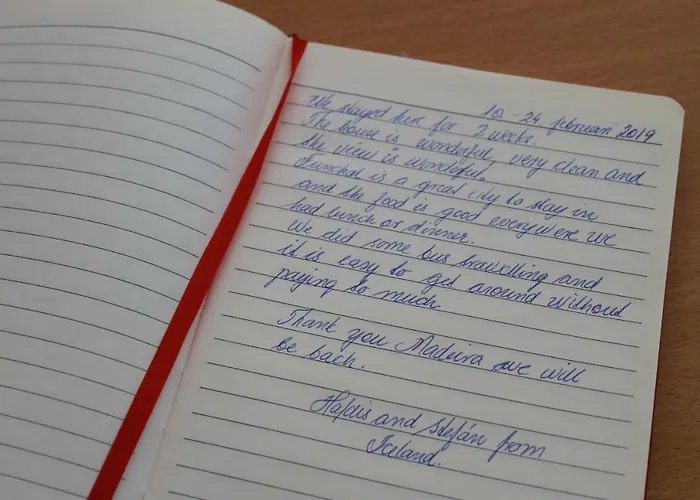 10. - 24. februari 2019
We stayed here for 2 weeks.
The house is wonderful, very clean and
the view is wonderful.
Funchal is a great city to stay in
and the food is good everywere we
had lunch or dinner.
We did some bus travelling and
it is easy to get around without
paying to much.
Thank you Madeira we will
be back.
Hafdís and Stefán from
Iceland.